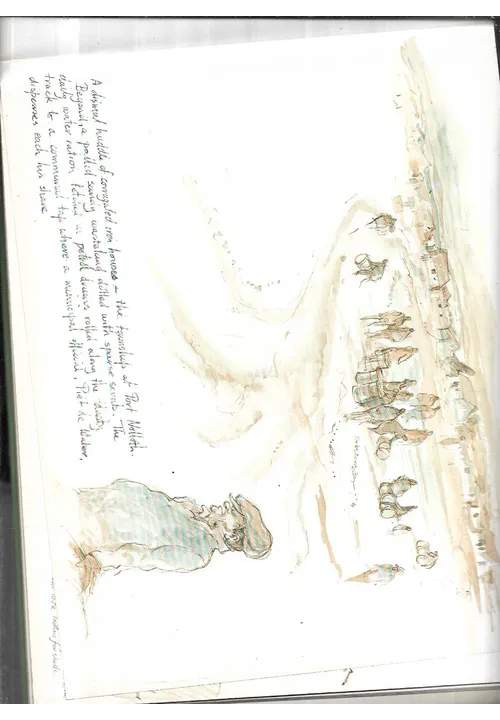 A dismal huddle of corrugated iron houses – the township at Port Nolloth.
Beyond, a pallid sandy wasteland dotted with sparse scrub. The
daily water ration fetched in petrol drums rolled along the dusty
track to a communal tap where a municipal official, Piet de Water,
dispenses each his share